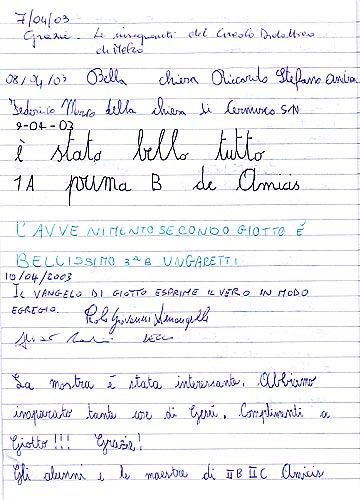 7/04/03
Grazie. Le insegnanti del Circolo Didattico
di Melzo
08/04/03 Bella chiera Riccardo Stefano Andrea
Federico Marco della chiera di Cernusco S/N
9-04-03
è stato bello tutto
1A prima B de Amicis
L'AVVENIMENTO SECONDO GIOTTO È
BELLISSIMO 3ªB UNGARETTI
10/04/2003
IL VANGELO DI GIOTTO ESPRIME IL VERO IN MODO
EGREGIO. Paolo Giovanni
La mostra è stata interessante. Abbiamo
imparato tante cose di Gesù. Complimenti a
Giotto!!! Grazie!
Gli alunni e le maestre di IIB IIC Amicis